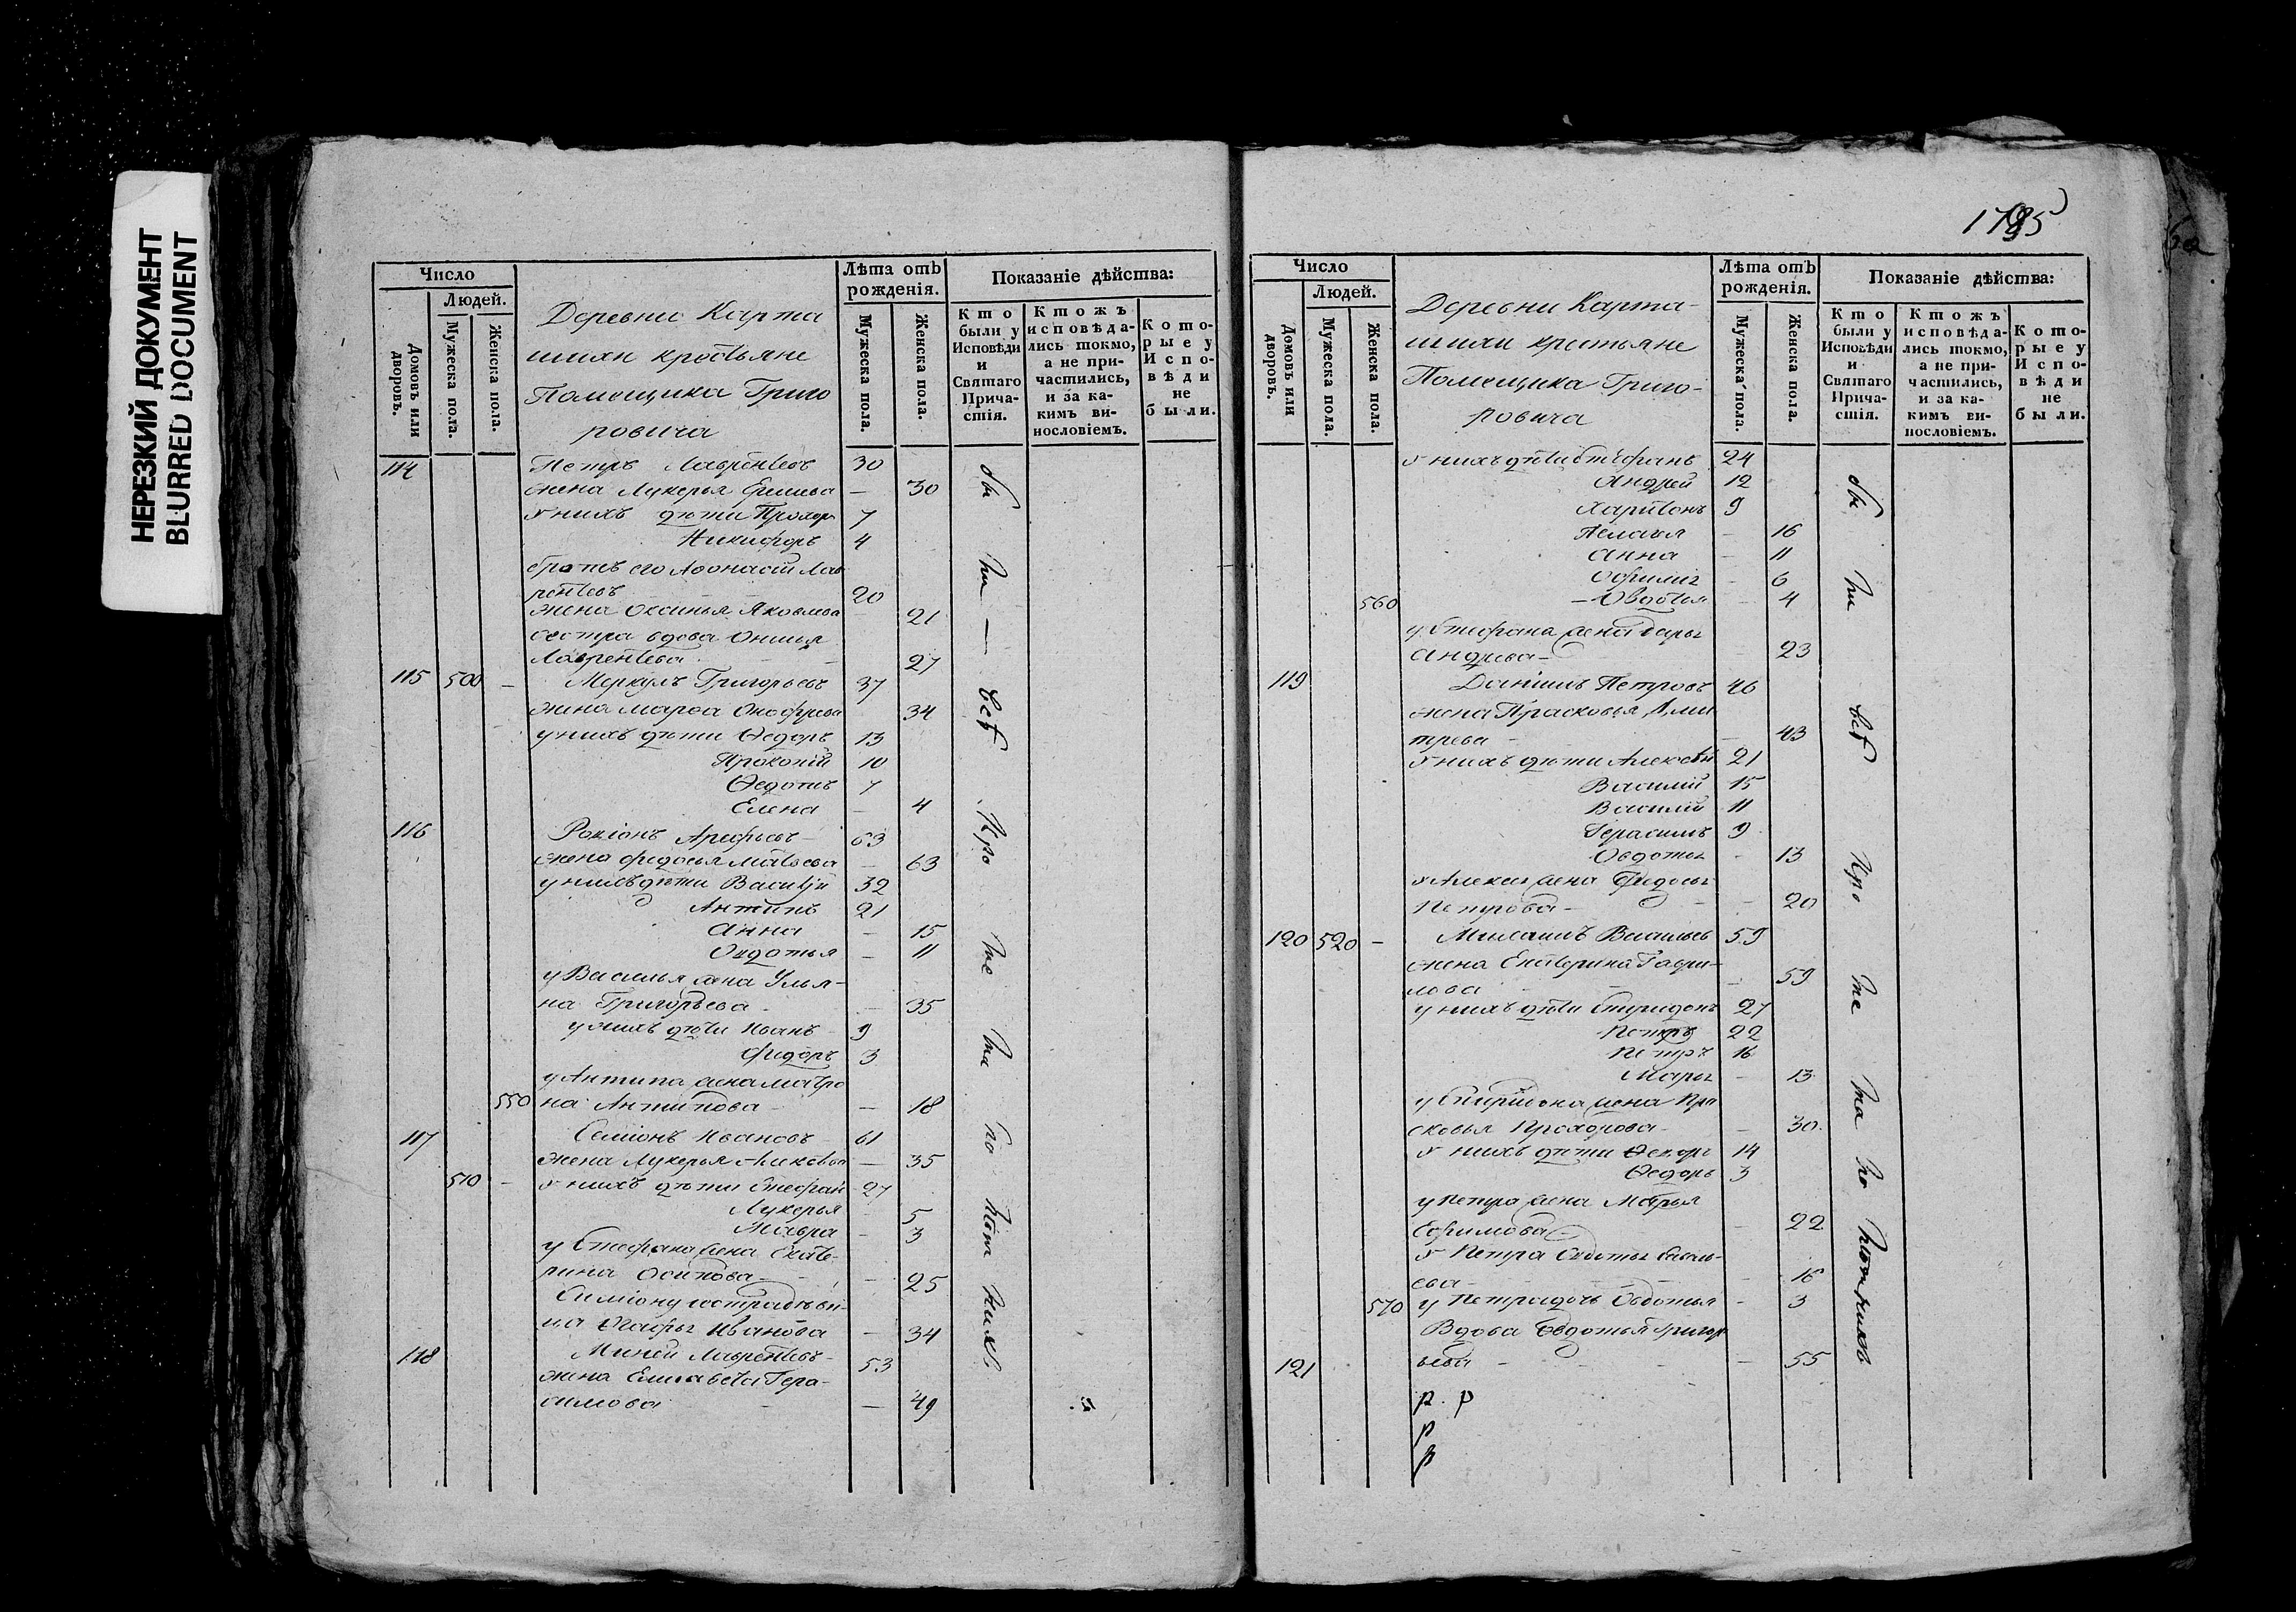 НЕРЕЗКИЙ ДОКУМЕНТ
BLURRED DOCUMENT
Число
Людей.
Домовъ или дворовъ.
Мужеска пола.
Женска пола.
Деревни Карта
шихи
Помещика Григо
ровича
Лѣта отъ рожденія.
Мужеска пола.
Женска пола.
Показаніе дѣйства:
Кто были у Исповѣди и Святаго Причастія.
Ктожъ исповѣдались токмо, а не причастились, и за какимъ винословіемъ.
Которые у Исповѣди не были.
114 Петръ Лаврентіевъ 30
жена Лукерья — 30
У нихъ дѣти Прохоръ 7
Никифоръ 4
братъ его Афонасій Лав
рентіевъ 20
жена Оксинья Яковлева 21
сестра вдова
Лаврентіева — 27
115 500 — Меркулъ Григорьевъ 37
жена Марѳа Онофриева 34
у нихъ дѣти Ѳедоръ 13
Прокопій 10
Ѳедотъ 7
Елена — 4
116 Арефьевъ — 63
жена Федосья Матвѣева — 63
у нихъ дѣти Василій 32
Антипъ 21
Анна — 15
Овдотья — 11
у Василья жена Улья-
на Григорьева — 35
у нихъ дѣти Иванъ 9
Федоръ 3
у Антипа жена Матро
550 на Антипова — 18
117 Семіонъ Ивановъ 61
жена Лукерья — 35
510 — У нихъ дѣти Стефан 27
Лукерья 5
Мавра — 3
у Стефана жена Екате-
рина Осипова — 25
Симіону сестра
ца Иванова — 34
118 Миней Лаврентіевъ — 53
жена Елисавета Гера-
симова — 49
1795
Число
Людей.
Домовъ или дворовъ.
Мужеска пола.
Женска пола.
Деревни Карта-
шихи крестьяне
Помещика Григо-
ровича
Лѣта отъ рожденія.
Мужеска пола.
Женска пола.
Показаніе дѣйства:
Кто были у Исповѣди и Святаго Причастія.
Ктожъ исповѣдались токмо, а не причастились, и за какимъ винословіемъ.
Которые у Исповѣди не были.
У нихъ дѣти Стефанъ 24
Андрей 12
Харитонъ 9
Пелагья — 16
Анна — 11
6
560 — Овдотья — 4
у Стефана жена Дарья
Андрева — 23
119 Даніилъ Петровъ 46
жена Прасковья Дми
трева — 43
У нихъ дѣти Алексѣй 21
Василій 15
Василій 11
Герасимъ 9
Овдотья — 13
у Алексея жена Федосья
Петрова — 20
120 520 — Васильев 59
жена Екатерина Гаври-
лова — 59
у нихъ дѣти Спиридонъ 27
Петръ 22
Петръ 16
Марья — 13
у Спиридона жена Пра
сковья Прохорова — 30
У нихъ дѣти 14
Ѳедоръ 3
у Петра жена Марья
Ефимова — 22
У Петра Савель-
ева — 16
570 у Петра дочь Овдотья — 3
Вдова Овдотья Григор
121 ьева — — 55
р. р
р
р